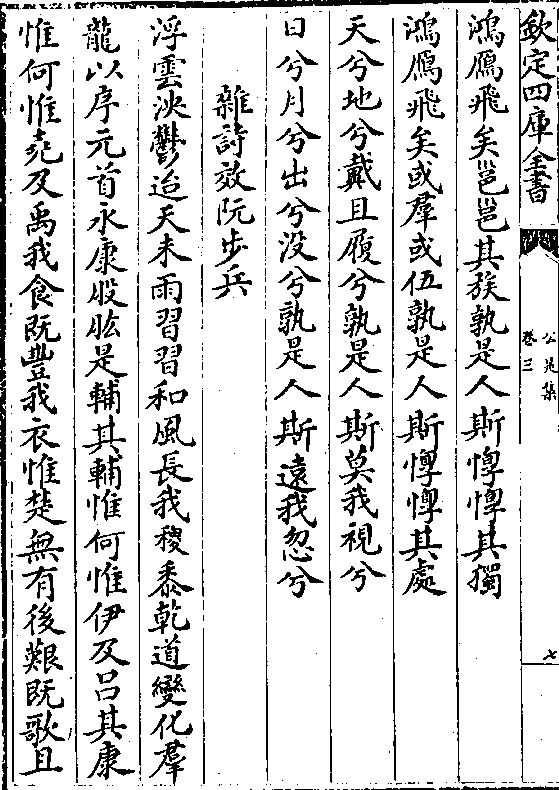 欽定四庫全書
公是集
卷三
七
鴻鴈飛矣邕邕其族孰是人斯惸惸其獨
鴻鴈飛矣或羣或伍孰是人斯惸惸其處
天兮地兮戴且履兮孰是人斯莫我視兮
日兮月兮出兮没兮孰是人斯遠我忽兮
雜詩效阮步兵
浮雲泱鬱迨天未雨習習和風長我稷黍乾道變化羣
龍以序元首永康股肱是輔其輔惟何惟伊及吕其康
惟何惟堯及禹我食既豐我衣惟楚無有後艱既歌且